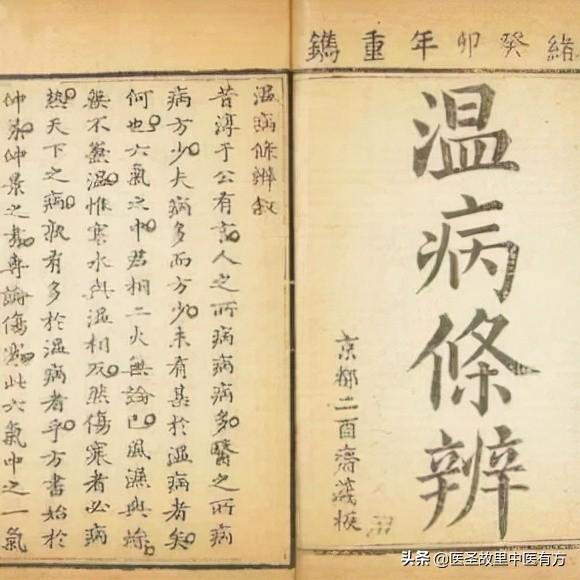 緒癸卯年重鐫
温病條辨
京都二酉齋藏板
温病條辨叙
昔淳于公有言人之所病病病多醫之所病
病方少夫病多而方少未有甚於温病者矣
何也六氣之中君相二火無論已風濕與燥
無不兼温惟寒水與温相反然傷寒者必病
熱天下之病孰有多於温病者乎方書始於
仲景仲景之書專論傷寒此六氣中之一氣
头条 @医圣故里中医有方